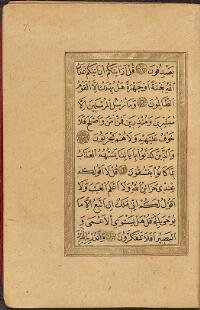 يصدفون قل أرأيتكم إن أتيكم عذاب
الله بغتة أو جهرة هل يهلك إلا القوم
الظالمون وما نرسل المرسلين إلا
مبشرين ومنذرين فمن آمن وأصلح فلا
خوف عليهم ولا هم يحزنون
والذين كذبوا بآياتنا يمسهم العذاب
بما كانوا يفسقون قل لا أقول لكم
عندي خزائن الله ولا أعلم الغيب ولا
أقول لكم إني ملك إن أتبع إلا ما
يوحى إلي قل هل يستوي الأعمى و
البصير أفلا تتفكرون وأنذر به